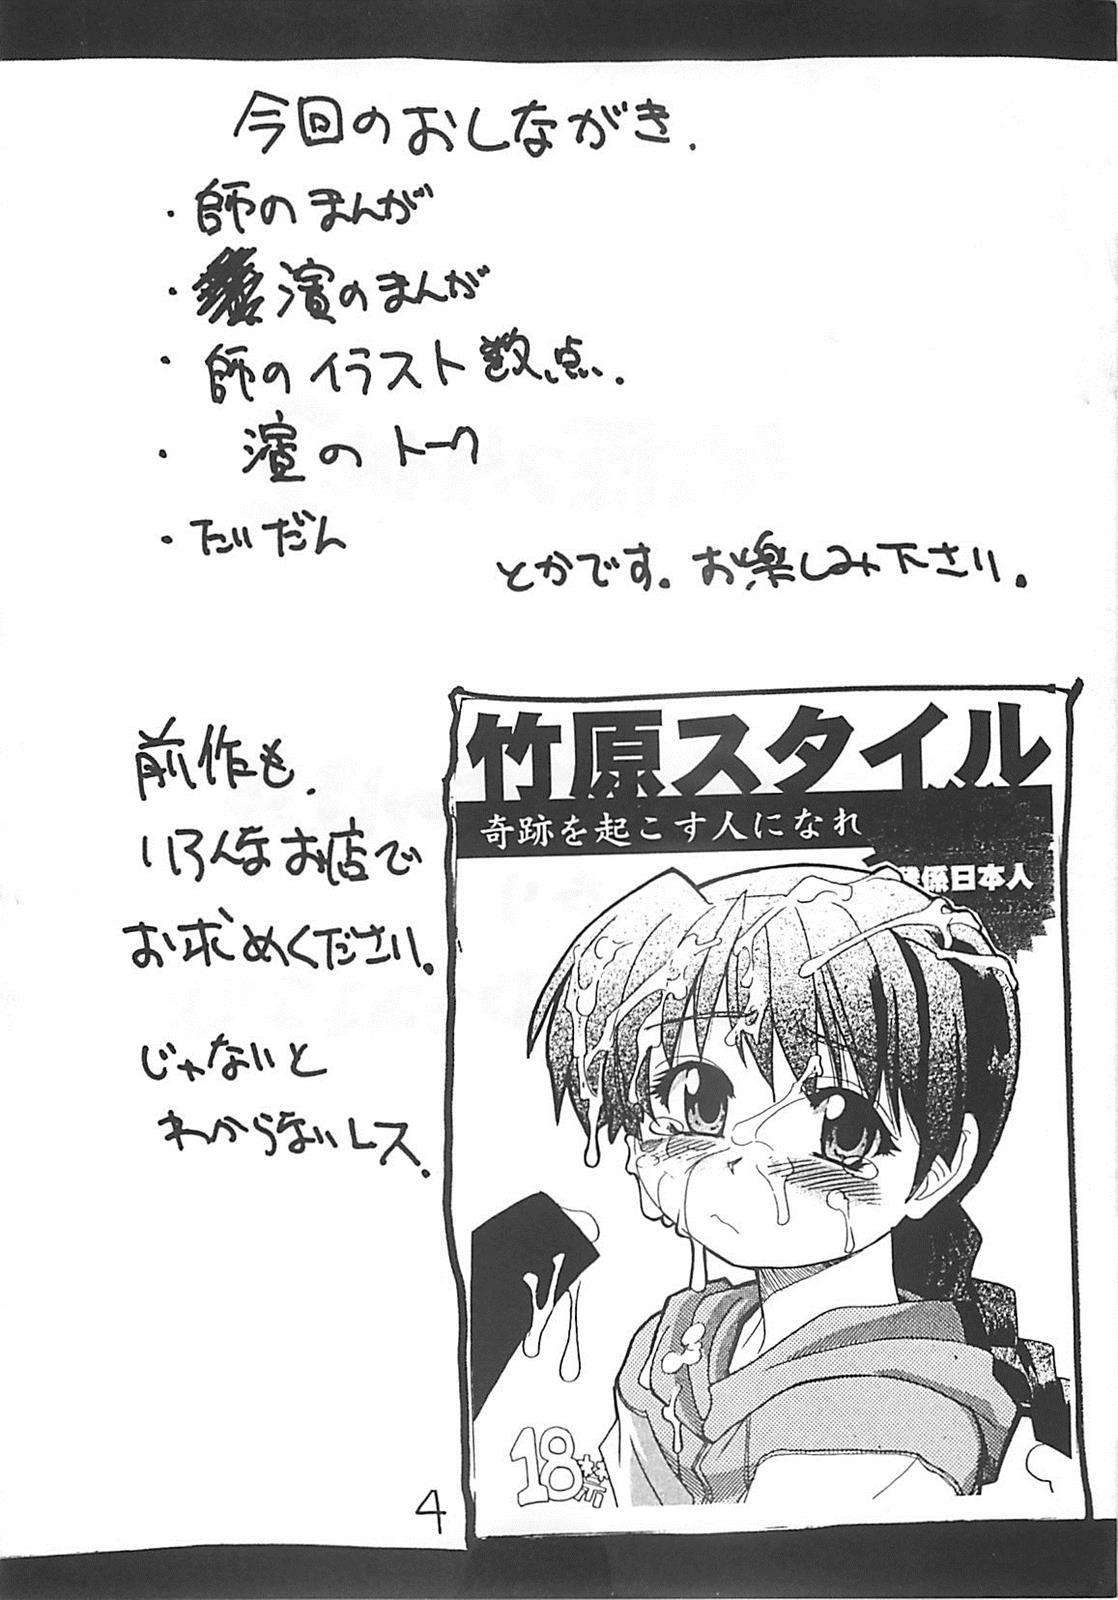 今回のおしながき.
・師のまんが
・濱のまんが
・師のイラスト数点.
・濱のトーク
・たいだん
とかです。お楽しみ下さい。
前作も、
いろんなお店で
お求めください。
じゃないと
わからないしス.
竹原スタイル
奇跡を起こす人になれ
係日本人
18禁
4